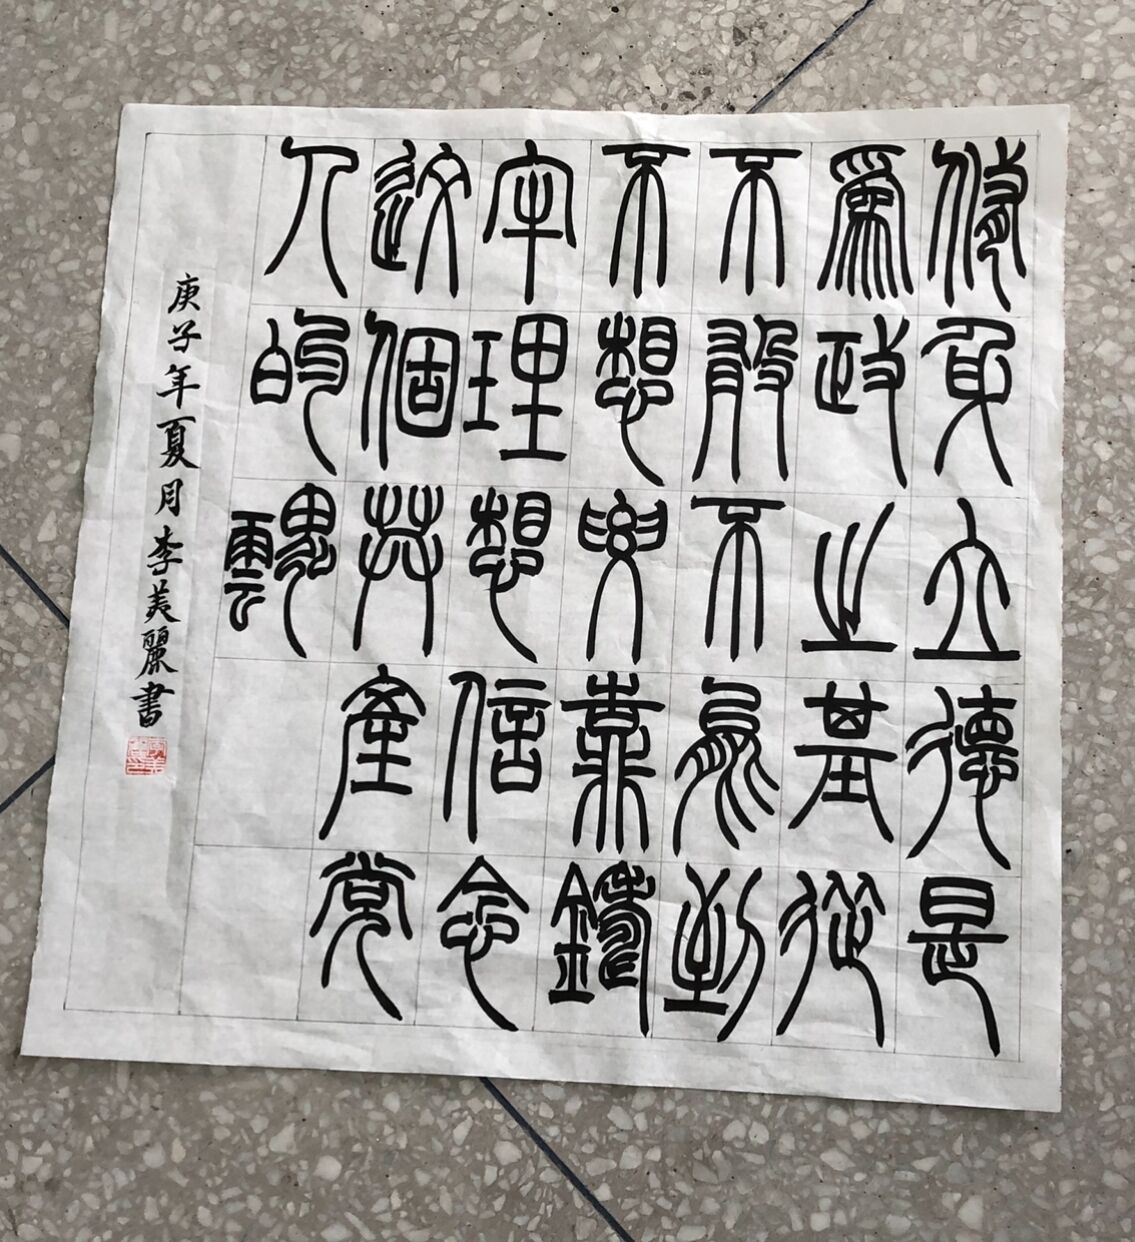 修身立德是
爲政之基從
不敢不能到
不想要靠鑄
牢理想信念
这個共產党
人的魂
庚子年夏月李美麗書